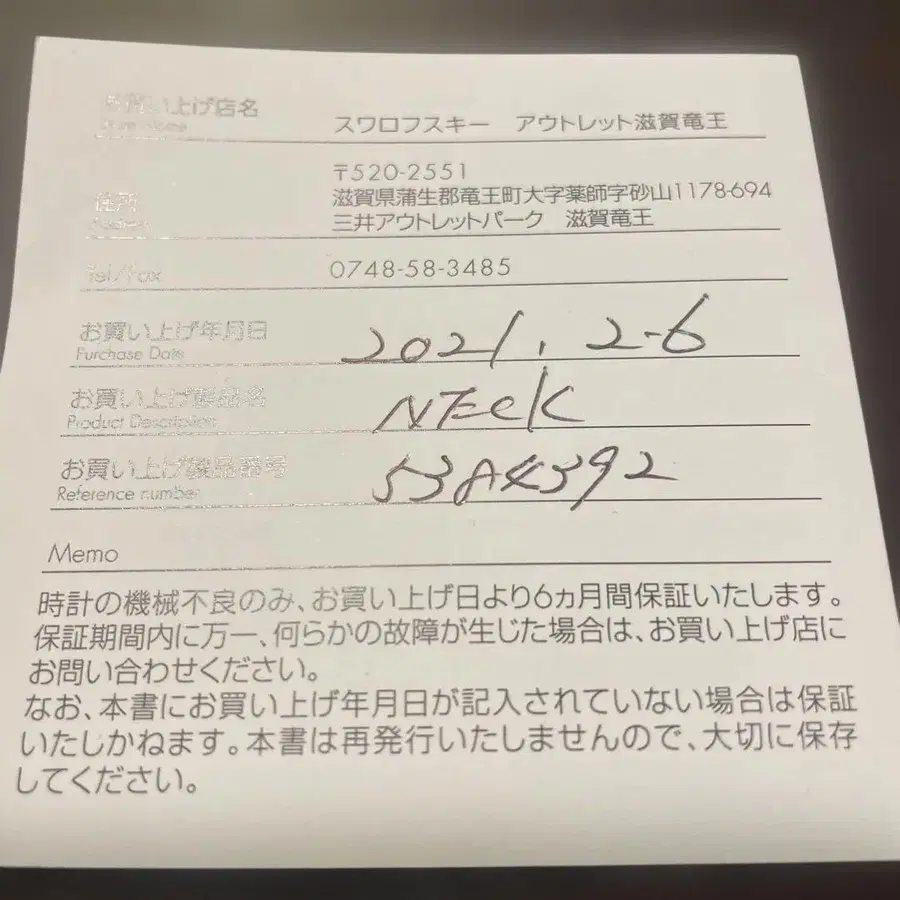 お買い上げ店名
Store Name
スワロフスキー　アウトレット滋賀竜王
住所
Address
〒520-2551
滋賀県蒲生郡竜王町大字薬師字砂山1178-694
三井アウトレットパーク　滋賀竜王
Tel/Fax
0748-58-3485
お買い上げ年月日
Purchase Date
2021. 2-6
お買い上げ製品名
Product Description
お買い上げ製品番号
Reference number
Memo
時計の機械不良のみ、お買い上げ日より6ヵ月間保証いたします。
保証期間内に万一、何らかの故障が生じた場合は、お買い上げ店に
お問い合わせください。
なお、本書にお買い上げ年月日が記入されていない場合は保証
いたしかねます。本書は再発行いたしませんので、大切に保存
してください。